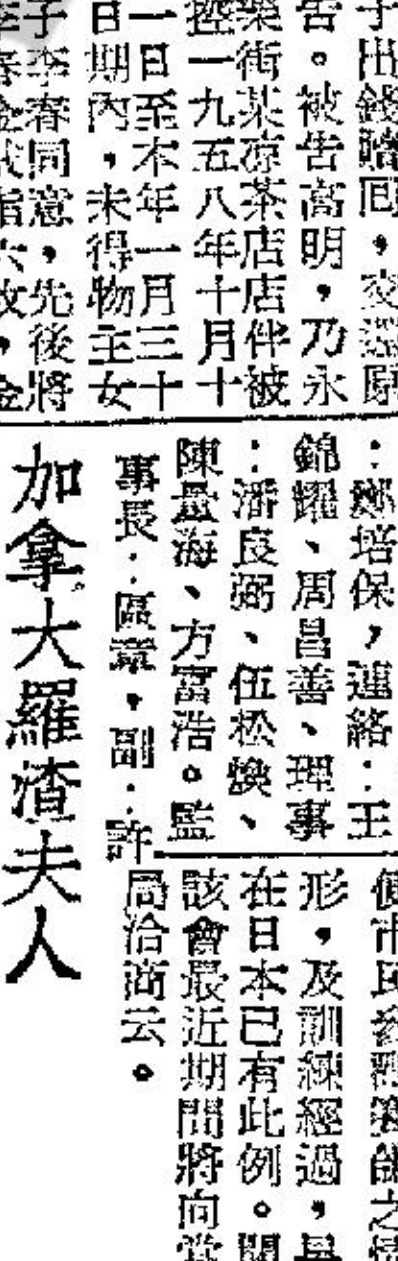 子出錢贖回，交還原
告。被告高明，乃永
樂街某凉茶店店伴被
控一九五八年十月十
一日至本年一月三十
日期內，未得物主女
子李春同意，先後將
：鄭培保，連絡：王
錦耀、周昌善、理事
：潘良弼、伍松煥、
陳量海、方富浩。監
事長：區章，副：許
加拿大羅渣夫人
便市民
之情
形，及訓練經過，
在日本已有此例。聞
該會最近期間將向當
局洽商云。